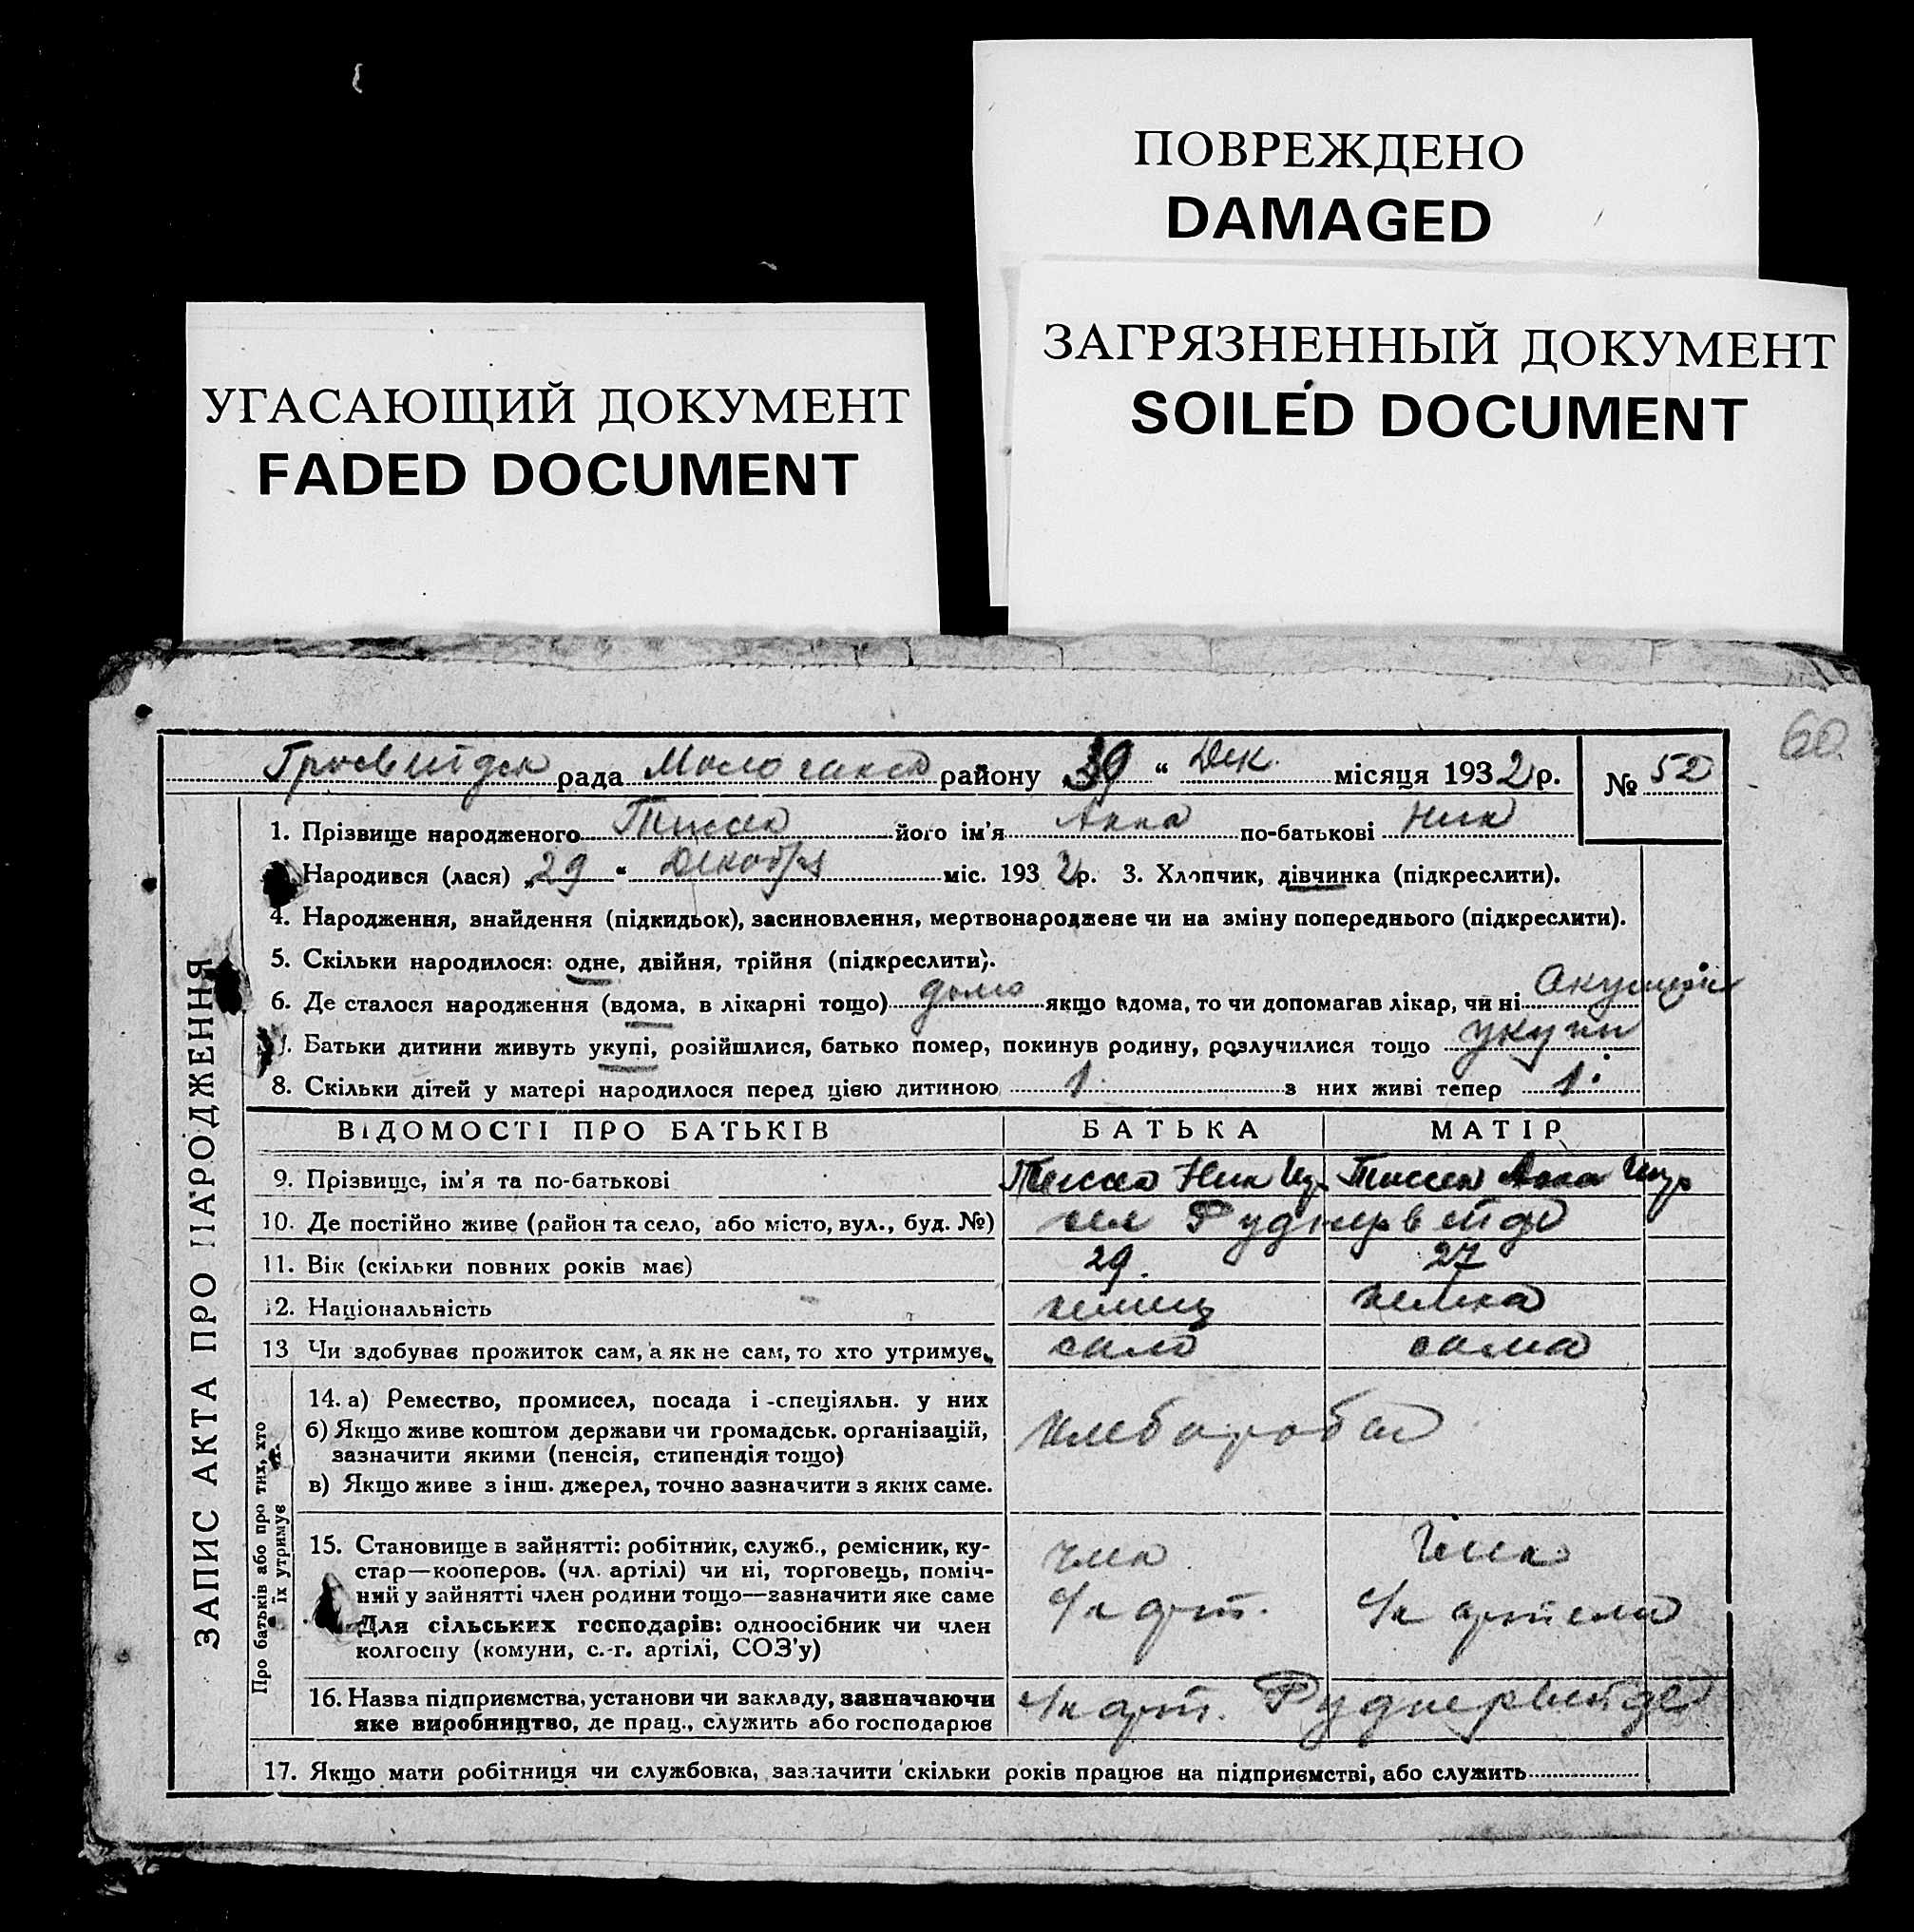 ПОВРЕЖДЕНО
DAMAGED
ЗАГРЯЗНЕННЫЙ ДОКУМЕНТ
SOILED DOCUMENT
УГАСАЮЩИЙ ДОКУМЕНТ
FADED DOCUMENT
60
рада району 30 “ Дек. місяця 1932 р. № 52
ЗАПИС АКТА ПРО НАРОДЖЕННЯ
1. Прізвище народженого Тиссен його ім'я Анна по-батькові Ник
Народився (лася) „29 “ Декабря міс. 1932 р. 3. Хлопчик, дівчинка (підкреслити).
4. Народження, знайдення (підкидьок), засиновлення, мертвонароджене чи на зміну попереднього (підкреслити).
5. Скільки народилося: одне, двійня, трійня (підкреслити).
6. Де сталося народження (вдома, в лікарні тощо) дома якщо вдома, то чи допомагав лікар, чи ні
7. Батьки дитини живуть укупі, розійшлися, батько помер, покинув родину, розлучилися тощо укупи
8. Скільки дітей у матері народилося перед цією дитиною 1 з них живі тепер 1.
ВІДОМОСТІ ПРО БАТЬКІВ БАТЬКА МАТІР
9. Прізвище, ім'я та по-батькові Тиссен Ник Тиссен Анна
10. Де постійно живе (район та село, або місто, вул., буд. №) Руднервейде
11. Вік (скільки повних років має) 29. 27
12. Національність немец немка
13 Чи здобуває прожиток сам, а як не сам, то хто утримує. сам сама
Про батьків або про тих, хто їх утримує
14. а) Ремество, промисел, посада і -спеціяльн. у них
б) Якщо живе коштом держави чи громадськ. організацій,
зазначити якими (пенсія, стипендія тощо)
в) Якщо живе з інш. джерел, точно зазначити з яких саме.
15. Становище в зайнятті: робітник, служб., ремісник, ку-
стар—кооперов. (чл. артілі) чи ні, торговець, поміч-
ний у зайнятті член родини тощо—зазначити яке саме
Для сільських господарів: одноосібник чи член
колгоспу (комуни, с.-г. артілі, СОЗ'у)
член член
арт. артели
16. Назва підприємства, установи чи закладу, зазначаючи
яке виробництво, де прац., служить або господарює
арт. Руднервейде
17. Якщо мати робітниця чи службовка, зазначити скільки років працює на підприємстві, або служить